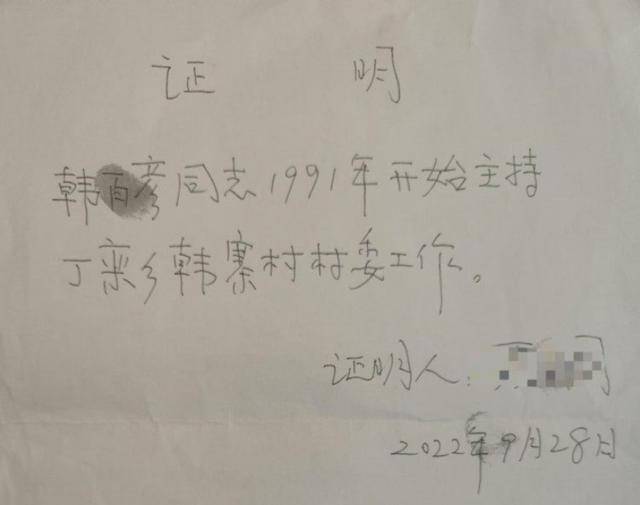 证 明
韩百彦同志1991年开始主持
丁栾乡韩寨村村委工作。
证明人:
2022年9月28日